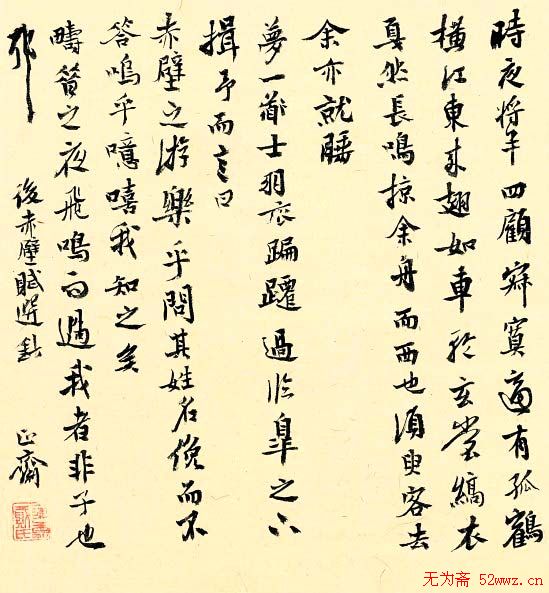 時夜將半四顧寂寞適有孤鶴
橫江東來翅如車輪玄裳縞衣
戛然長鳴掠余舟而西也須臾客去
余亦就睡
夢一道士羽衣蹁躚過臨皋之下
揖予而言曰
赤壁之遊樂乎問其姓名俛而不
答嗚乎噫嘻我知之矣
疇昔之夜飛鳴而過我者非子也
耶
後赤壁賦選鈔
正齋
无为斋 52wwz.cn